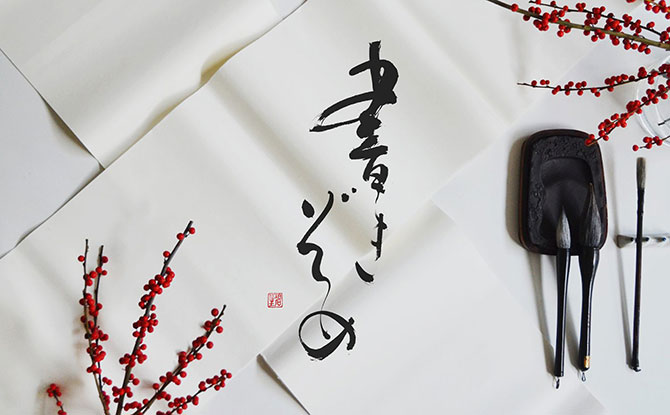 書き
ぞめ